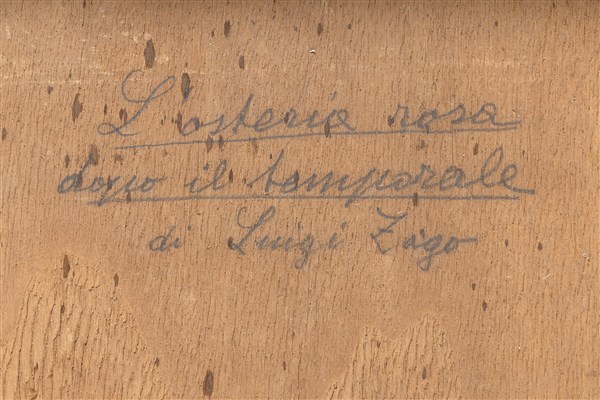 L'osteria rosa
dopo il temporale
di Luigi Zago